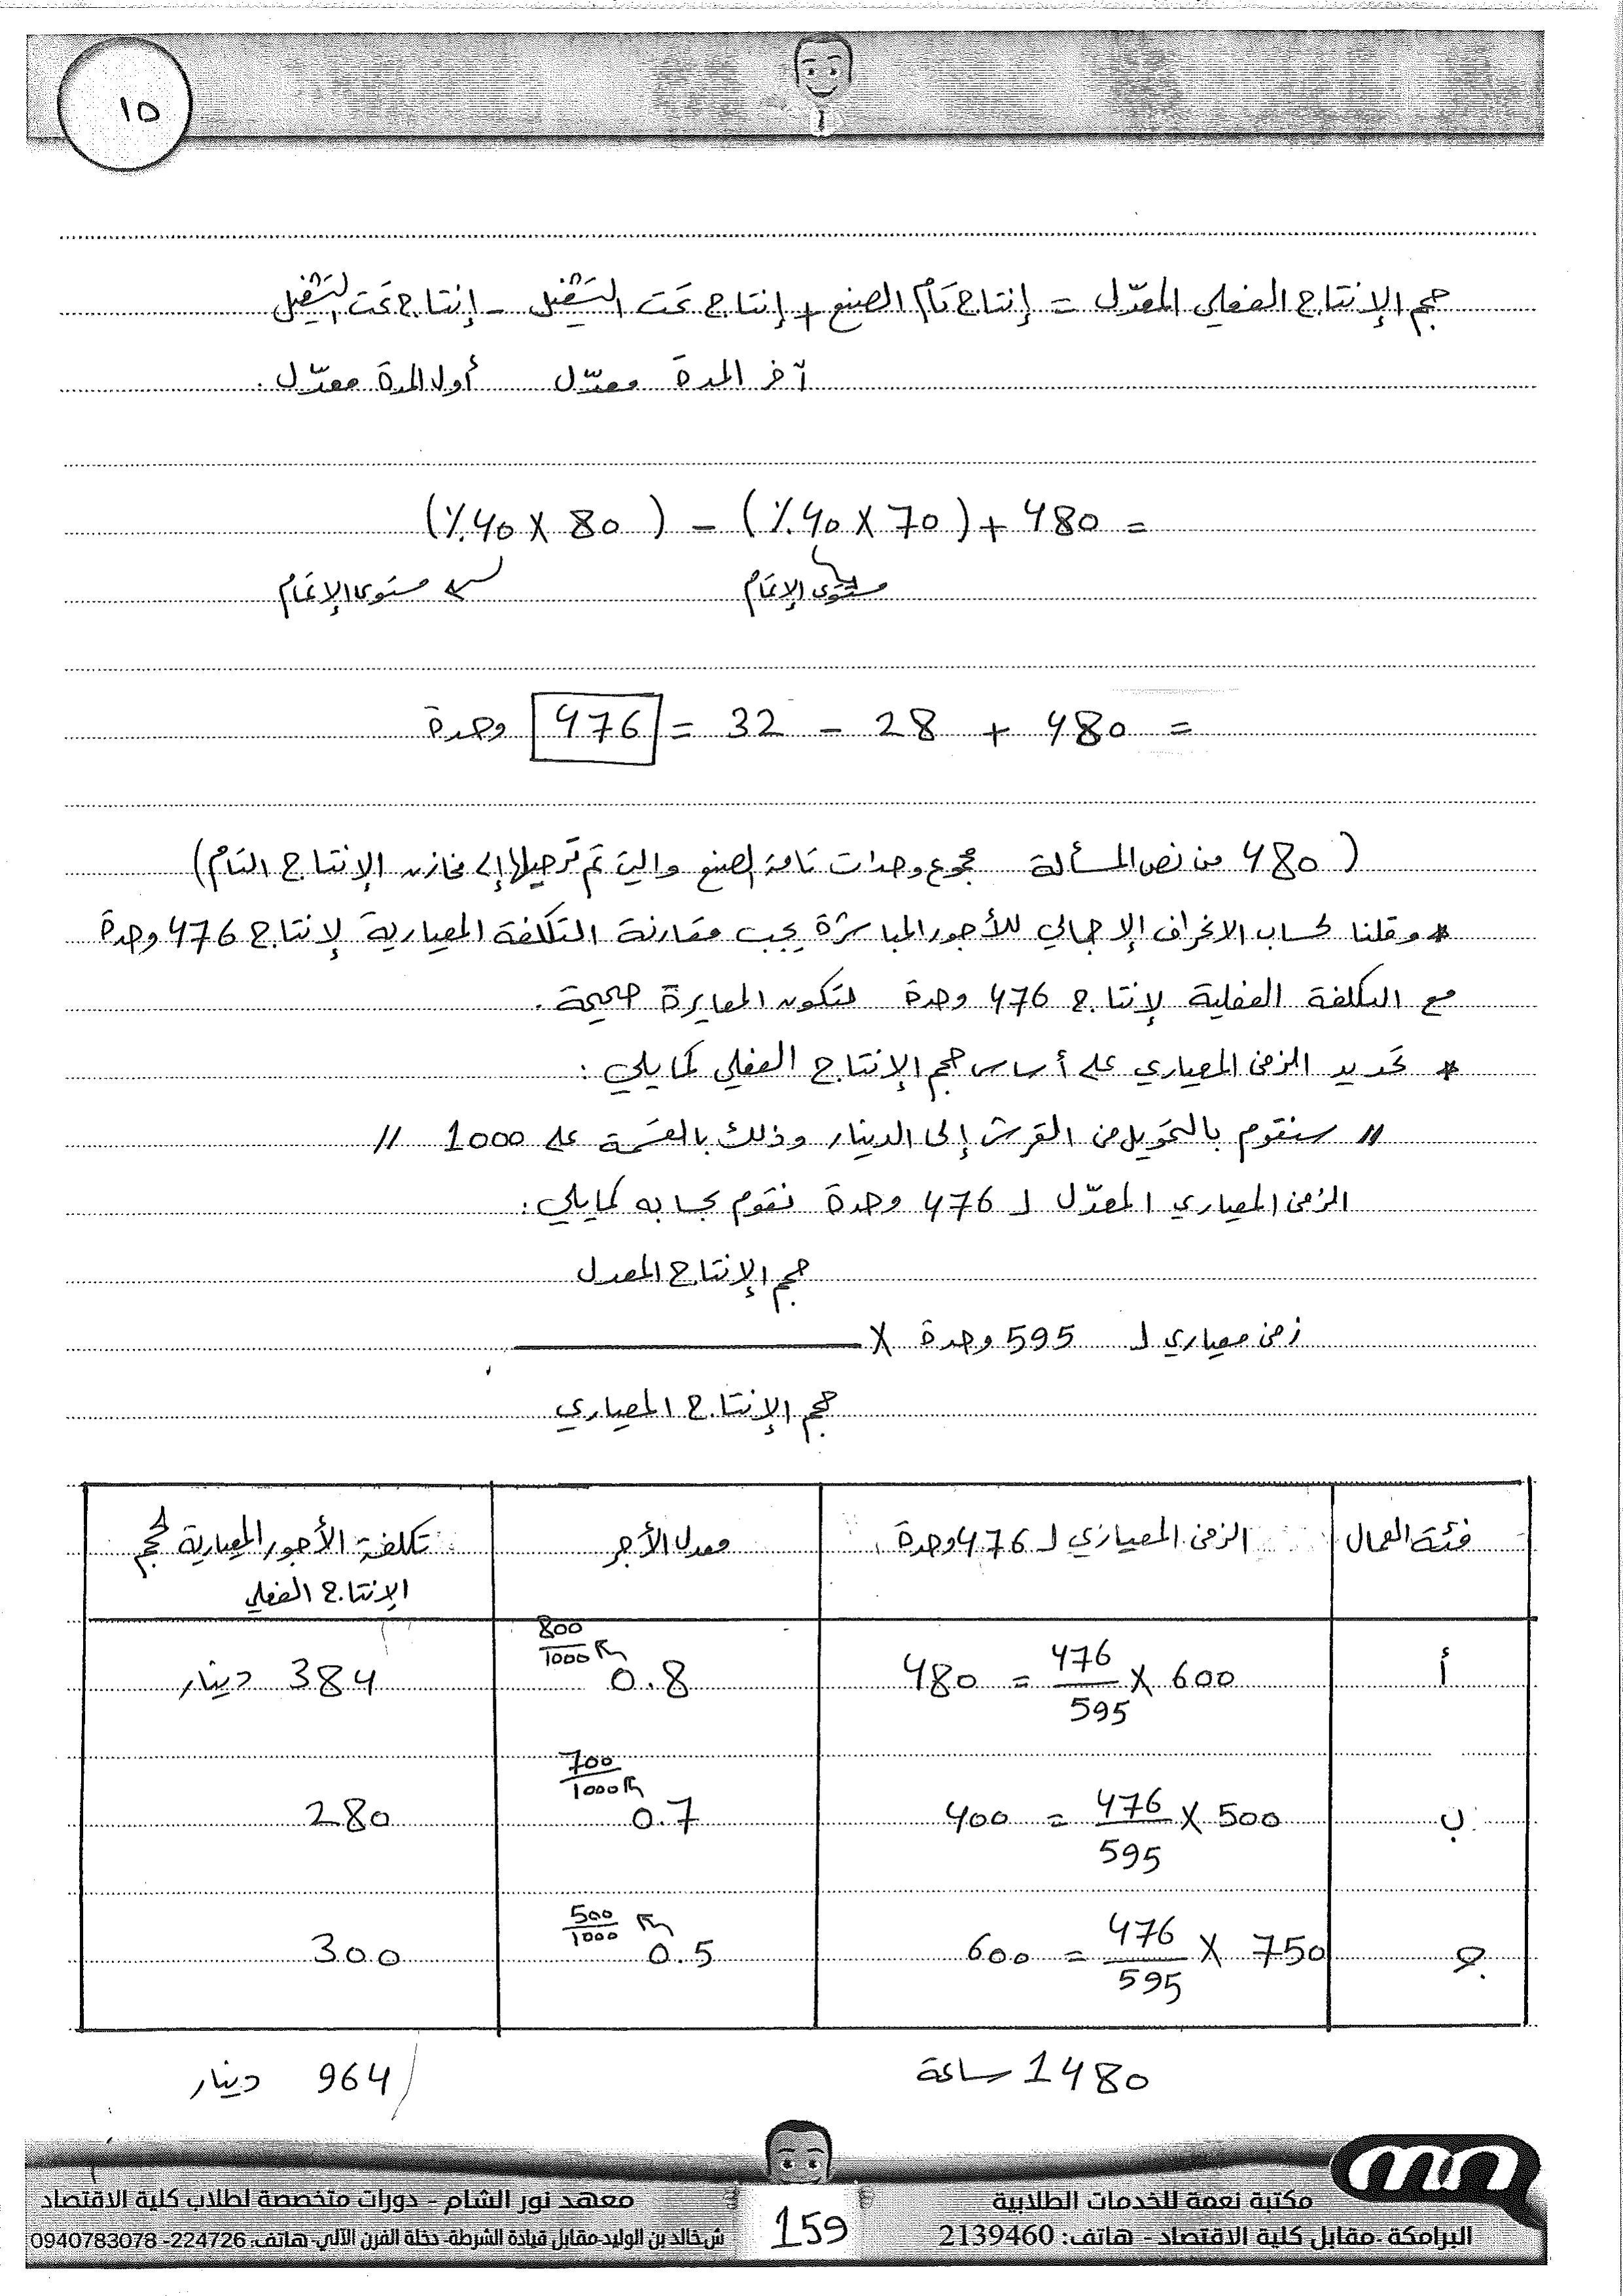 ١٥
حجم الإنتاج الفعلي المعدّل = إنتاج تام الصنع + إنتاج تحت التشغيل - إنتاج تحت التشغيل
آخر المدة معدّل أول المدة معدّل .
= 480 + (70 × 40٪) - (80 × 40٪)
مستوى الإتمام مستوى الإتمام
= 480 + 28 - 32 = 476 وحدة
( 480 من نص المسألة مجموع وحدات تامة الصنع والتي تم ترحيلها إلى مخازن الإنتاج التام )
* وقلنا لحساب الانحراف الإجمالي للأجور المباشرة يجب مقارنة التكلفة المعيارية لإنتاج 476 وحدة
مع التكلفة الفعلية لإنتاج 476 وحدة لتكون المعايرة صحيحة .
* تحديد الزمن المعياري على أساس حجم الإنتاج الفعلي كما يلي :
// سنقوم بالتحويل من القرش إلى الدينار وذلك بالقسمة على 1000 //
الزمن المعياري المعدّل لـ 476 وحدة نقوم بحسابه كما يلي :
حجم الإنتاج المعدل
زمن معياري لـ 595 وحدة ×
حجم الإنتاج المعياري
فئة العمال الزمن المعياري لـ 476 وحدة معدل الأجر تكلفة الأجور المعيارية لحجم
الإنتاج الفعلي
أ 600 × 476/595 = 480 0.8 800/1000 384 دينار
ب 500 × 476/595 = 400 0.7 700/1000 280
جـ 750 × 476/595 = 600 0.5 500/1000 300
1480 ساعة 964 دينار
مكتبة نعمة للخدمات الطلابية
البرامكة -مقابل كلية الاقتصاد - هاتف: 2139460
159
معهد نور الشام - دورات متخصصة لطلاب كلية الاقتصاد
ش خالد بن الوليد-مقابل قيادة الشرطة- دخلة الفرن الآلي-هاتف: 224726- 0940783078